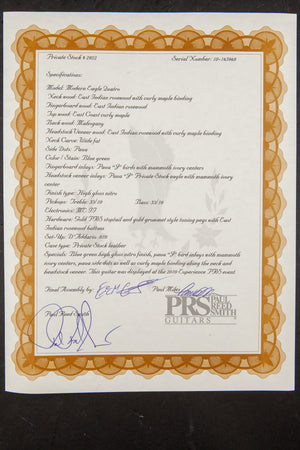 Private Stock # 2852 Serial Number: 10-163968
Specifications:
Model: Modern Eagle Quatro
Neck wood: East Indian rosewood with curly maple binding
Fingerboard wood: East Indian rosewood
Top wood: East Coast curly maple
Back wood: Mahogany
Headstock Veneer wood: East Indian rosewood with curly maple binding
Neck Carve: Wide fat
Side Dots: Paua
Color / Stain: Blue green
Fingerboard inlays: Paua "J" birds with mammoth ivory centers
Headstock veneer inlays: Paua "J" Private Stock eagle with mammoth
ivory center
Finish type: High gloss nitro
Pickups: Treble: 53/10 Bass: 53/10
Hardware: Gold PRS stoptail and gold grommet style tuning pegs with East
Indian rosewood buttons
Set-Up: D'Addario .010
Case type: Private Stock leather
Specials: Blue green high gloss nitro finish, paua "J" bird inlays with mammoth
ivory centers, paua side dots as well as curly maple binding along the neck and
headstock veneer. This guitar was displayed at the 2010 Experience PRS event
Final Assembly by: Paul Miles
PRS PAUL
REED
SMITH
GUITARS
Paul Reed Smith